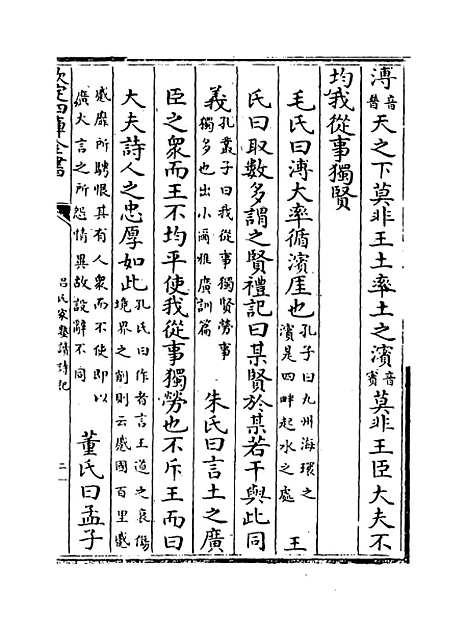 溥音普天之下莫非王土率土之濱音賓莫非王臣大夫不
均我從事獨賢
毛氏曰溥大率循濱厓也孔子曰九州海環之濱是四畔起水之處王
氏曰取數多謂之賢禮記曰某賢於某若干與此同
義孔叢子曰我從事獨賢勞事獨多也出小爾雅廣訓篇朱氏曰言土之廣
臣之衆而王不均平使我從事獨勞也不斥王而曰
大夫詩人之忠厚如此孔氏曰作者言王道之衰傷境界之削則云蹙國百里蹙
蹙靡所騁恨其有人衆而不使即以廣大言之所怨情異故設辭不同董氏曰孟子
欽定四庫全書
呂氏家塾讀詩記
二一